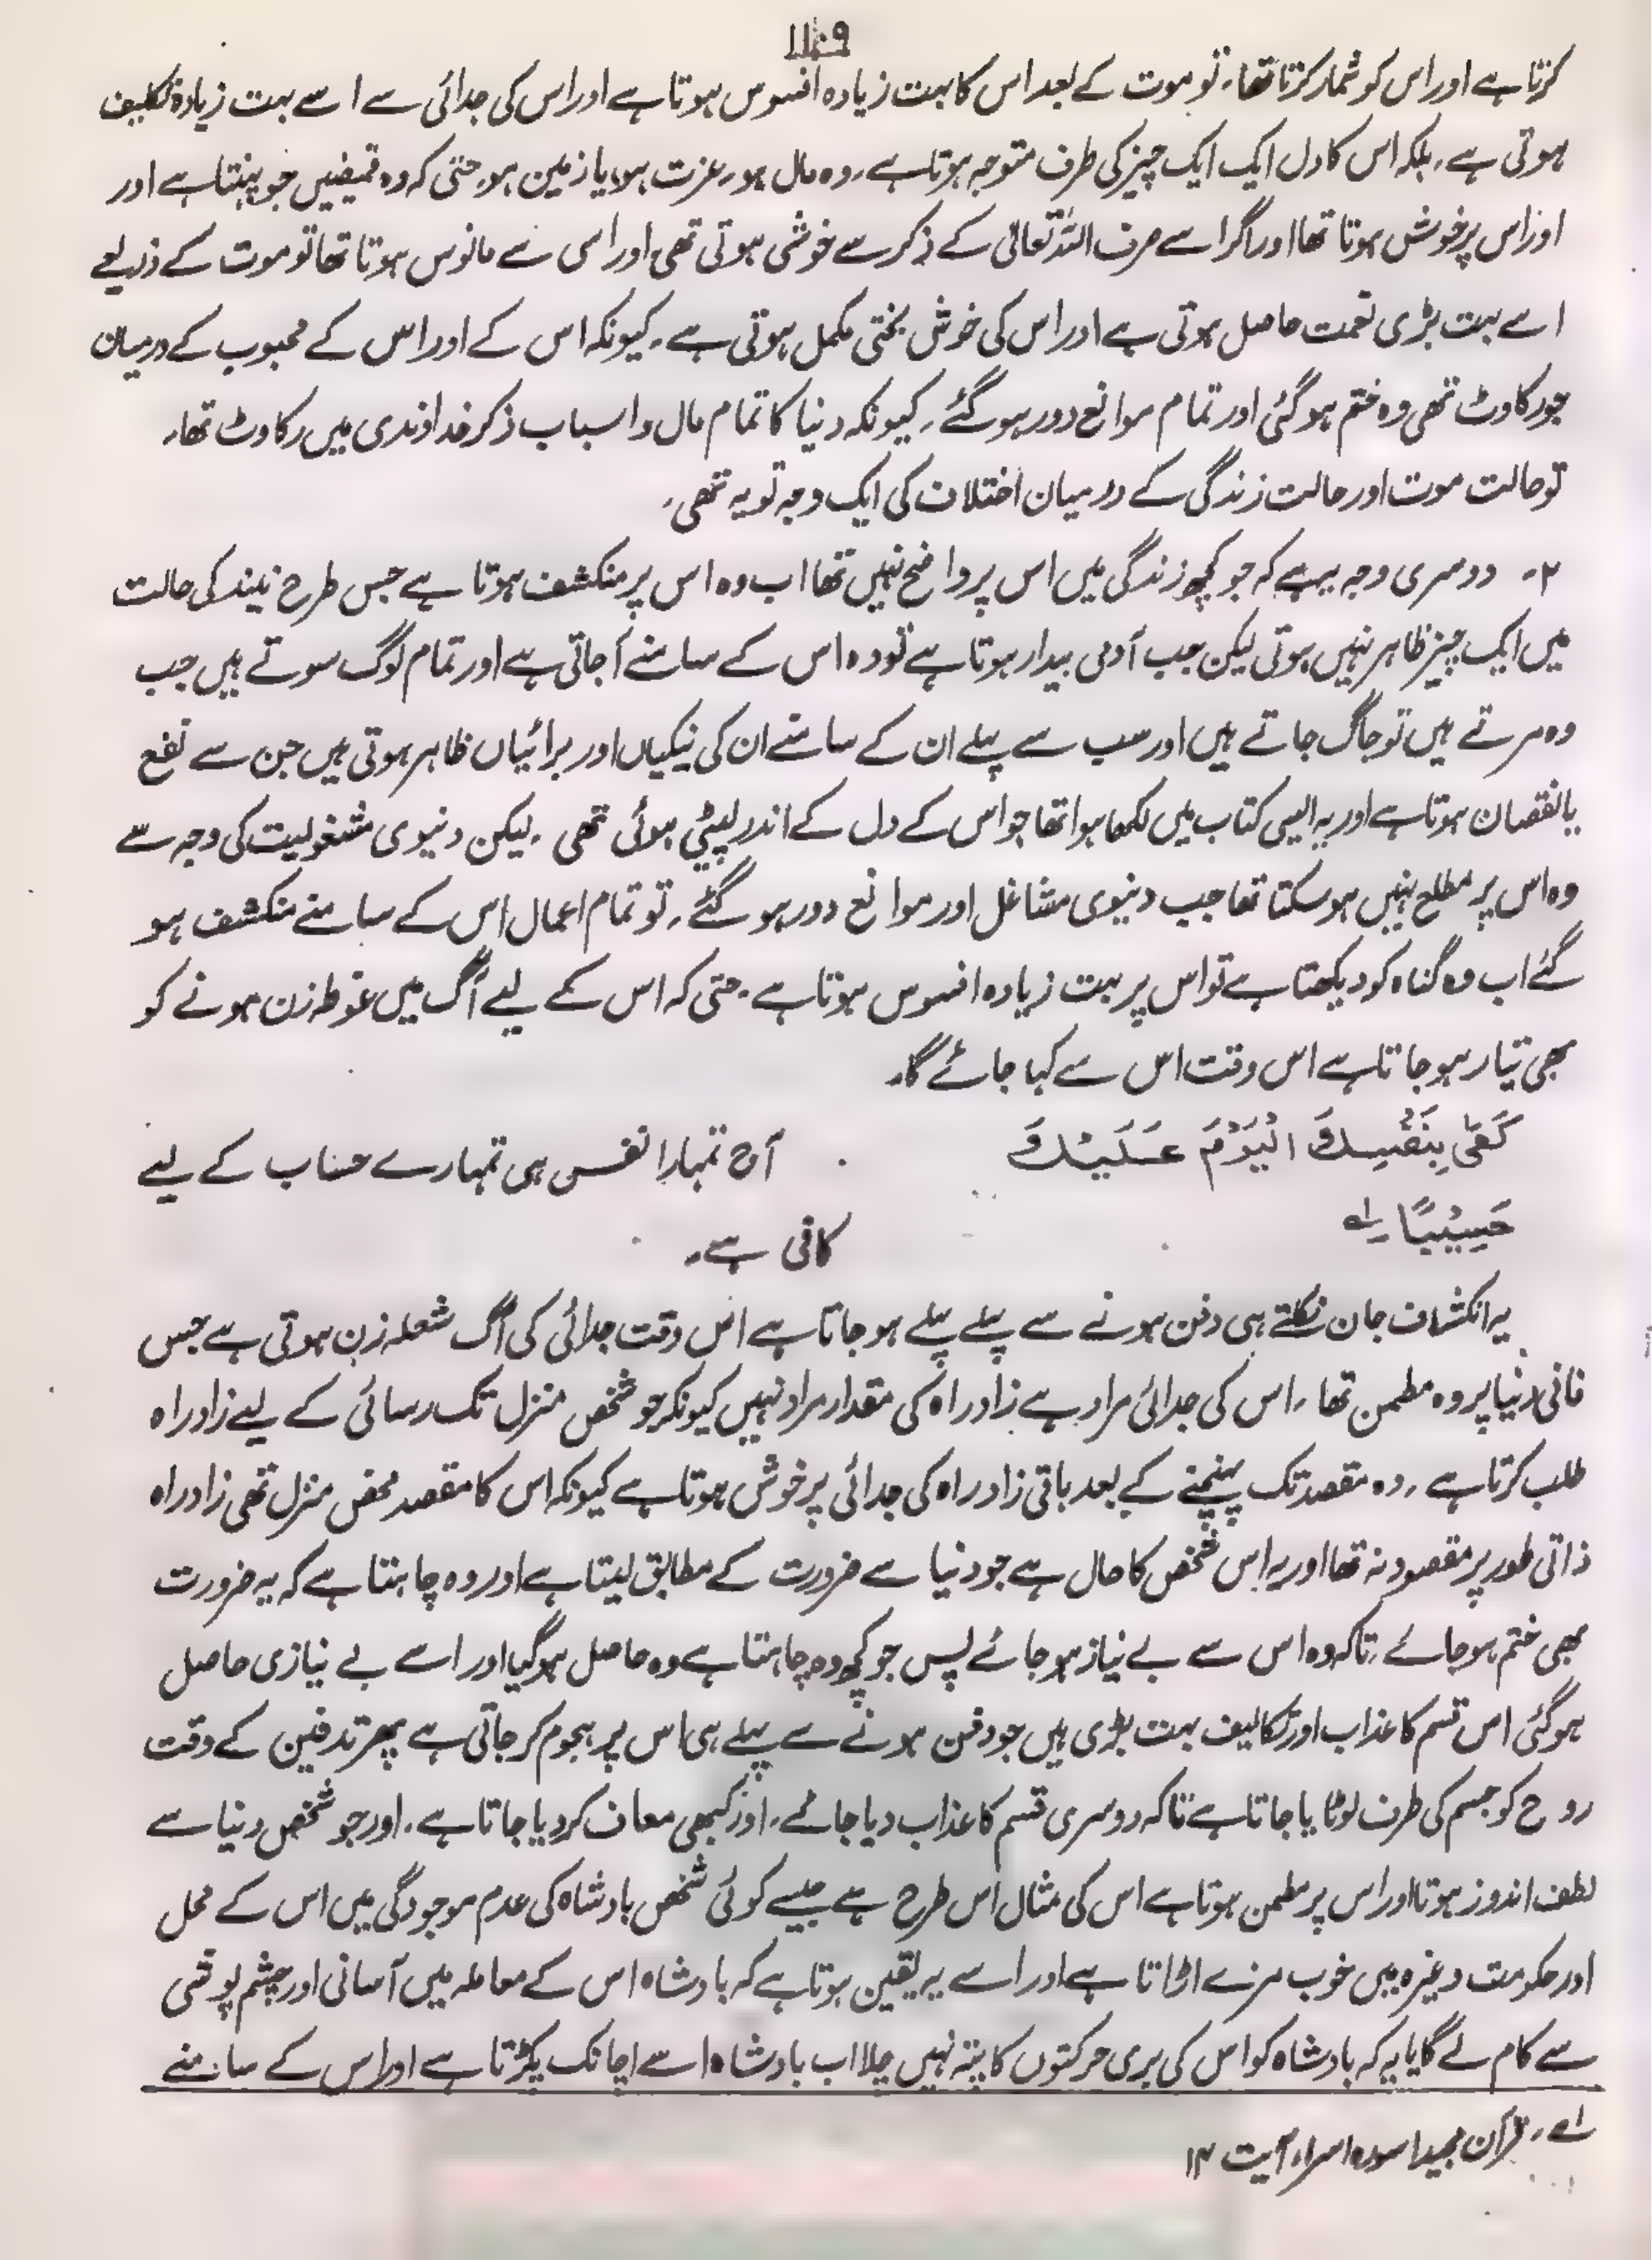 ۱۱۰۹
کرتا ہے اور اس کو شمار کرتا تھا، تو موت کے بعد اس کا بہت زیادہ افسوس ہوتا ہے اور اس کی جدائی سے اسے بہت زیادہ تکلیف
ہوتی ہے، بلکہ اس کا دل ایک ایک چیز کی طرف متوجہ ہوتا ہے، وہ مال ہو، عزت ہو، یا زمین ہو، حتیٰ کہ وہ قمیضیں جو پہنتا ہے اور
اور اس پر خوش ہوتا تھا اور اگر اسے صرف اللہ تعالیٰ کے ذکر سے خوشی ہوتی تھی اور اسی سے مانوس ہوتا تھا تو موت کے ذریعے
اسے بہت بڑی نعمت حاصل ہوتی ہے اور اس کی خوش بختی مکمل ہوتی ہے، کیونکہ اس کے اور اس کے محبوب کے درمیان
جو رکاوٹ تھی وہ ختم ہو گئی اور تمام موانع دور ہو گئے، کیونکہ دنیا کا تمام مال و اسباب ذکر خداوندی میں رکاوٹ تھا،
تو حالت موت اور حالت زندگی کے درمیان اختلاف کی ایک وجہ تو یہ تھی،
۲۔ دوسری وجہ یہ ہے کہ جو کچھ زندگی میں اس پر واضح نہیں تھا اب وہ اس پر منکشف ہوتا ہے جس طرح نیند کی حالت
میں ایک چیز ظاہر نہیں ہوتی لیکن جب آدمی بیدار ہوتا ہے تو وہ اس کے سامنے آ جاتی ہے اور تمام لوگ سوتے ہیں جب
وہ مرتے ہیں تو جاگ جاتے ہیں اور سب سے پہلے ان کے سامنے ان کی نیکیاں اور برائیاں ظاہر ہوتی ہیں جن سے نفع
یا نقصان ہوتا ہے اور یہ ایسی کتاب میں لکھا ہوا تھا جو اس کے دل کے اندر لپیٹی ہوئی تھی، لیکن دنیوی مشغولیت کی وجہ سے
وہ اس پر مطلع نہیں ہو سکتا تھا جب دنیوی مشاغل اور موانع دور ہو گئے، تو تمام اعمال اس کے سامنے منکشف ہو
گئے اب وہ گناہ کو دیکھتا ہے تو اس پر بہت زیادہ افسوس ہوتا ہے، حتیٰ کہ اس کے لیے آگ میں غوطہ زن ہونے کو
بھی تیار ہو جاتا ہے اس وقت اس سے کہا جائے گا،
كَفٰى بِنَفْسِكَ الْيَوْمَ عَلَيْكَ آج تمہارا نفس ہی تمہارے حساب کے لیے
حَسِيْبًا ؎۱ کافی ہے،
یہ انکشاف جان نکلتے ہی دفن ہونے سے پہلے پہلے ہو جاتا ہے اس وقت جدائی کی آگ شعلہ زن ہوتی ہے جس
فانی دنیا پر وہ مطمئن تھا، اس کی جدائی مراد ہے زاد راہ کی مقدار مراد نہیں کیونکہ جو شخص منزل تک رسائی کے لیے زاد راہ
طلب کرتا ہے، وہ مقصد تک پہنچنے کے بعد باقی زاد راہ کی جدائی پر خوش ہوتا ہے کیونکہ اس کا مقصد محض منزل تھی زاد راہ
ذاتی طور پر مقصود نہ تھا اور یہ اس شخص کا حال ہے جو دنیا سے ضرورت کے مطابق لیتا ہے اور وہ چاہتا ہے کہ یہ ضرورت
بھی ختم ہو جائے، تاکہ وہ اس سے بے نیاز ہو جائے پس جو کچھ وہ چاہتا ہے وہ حاصل ہو گیا اور اسے بے نیازی حاصل
ہو گئی اس قسم کا عذاب اور تکالیف بہت بڑی ہیں جو دفن ہونے سے پہلے ہی اس پر ہجوم کر جاتی ہے پھر تدفین کے وقت
روح کو جسم کی طرف لوٹایا جاتا ہے تاکہ دوسری قسم کا عذاب دیا جائے، اور کبھی معاف کر دیا جاتا ہے، اور جو شخص دنیا سے
لطف اندوز ہوتا اور اس پر مطمئن ہوتا ہے اس کی مثال اس طرح ہے جیسے کوئی شخص بادشاہ کی عدم موجودگی میں اس کے محل
اور حکومت وغیرہ میں خوب مزے اڑاتا ہے اور اسے یہ یقین ہوتا ہے کہ بادشاہ اس کے معاملہ میں آسانی اور چشم پوشی
سے کام لے گا یا یہ کہ بادشاہ کو اس کی بری حرکتوں کا پتہ نہیں چلا اب بادشاہ اسے اچانک پکڑتا ہے اور اس کے سامنے
؎۱، قرآن مجید، سورہ اسراء آیت ۱۴